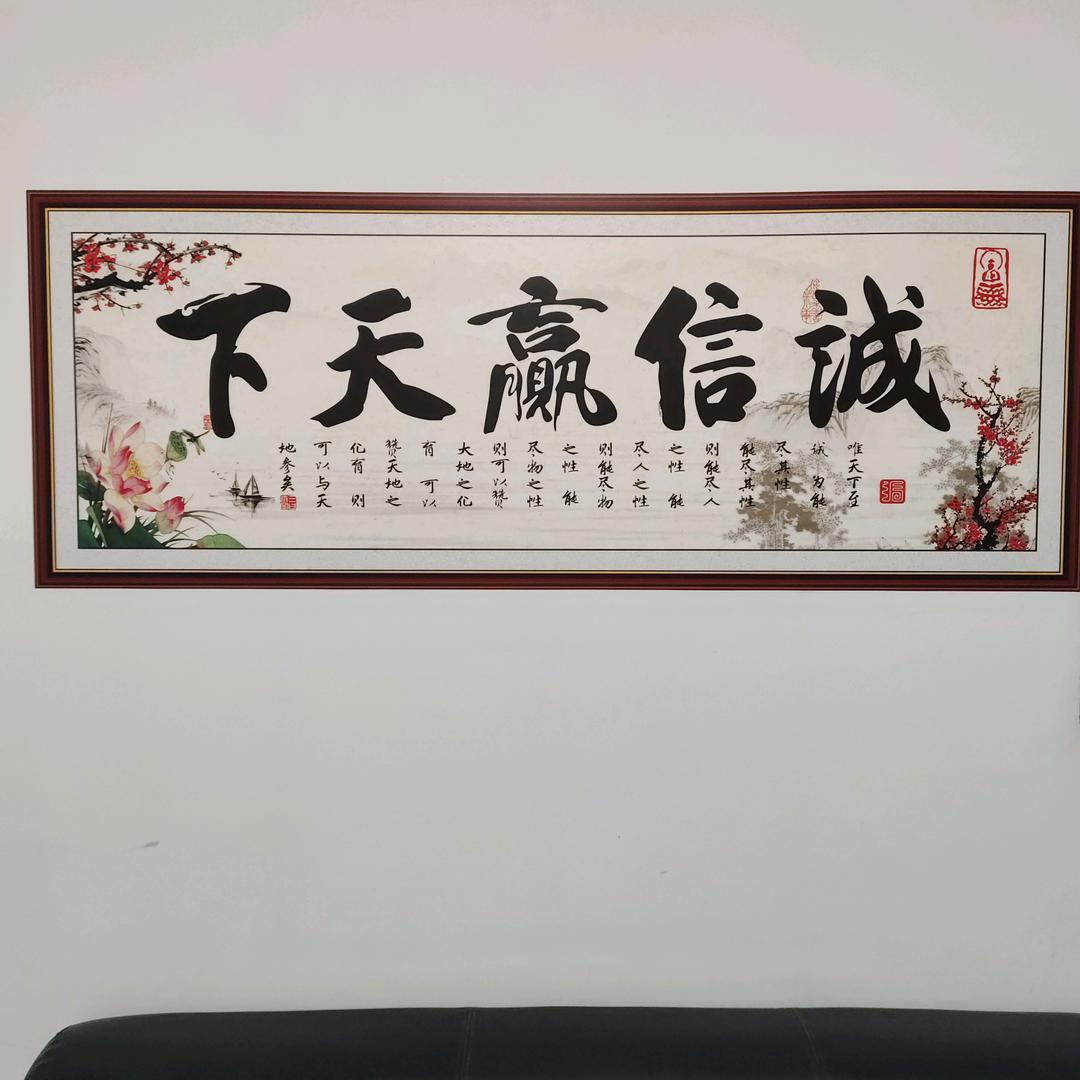 誠信贏天下
唯天下至
诚 为能
尽其性
能尽其性
则能尽人
之性 能
尽人之性
则能尽物
之性 能
尽物之性
则可以赞
大地之化
有 可以
赞天地之
化有 则
可以与天
地参矣